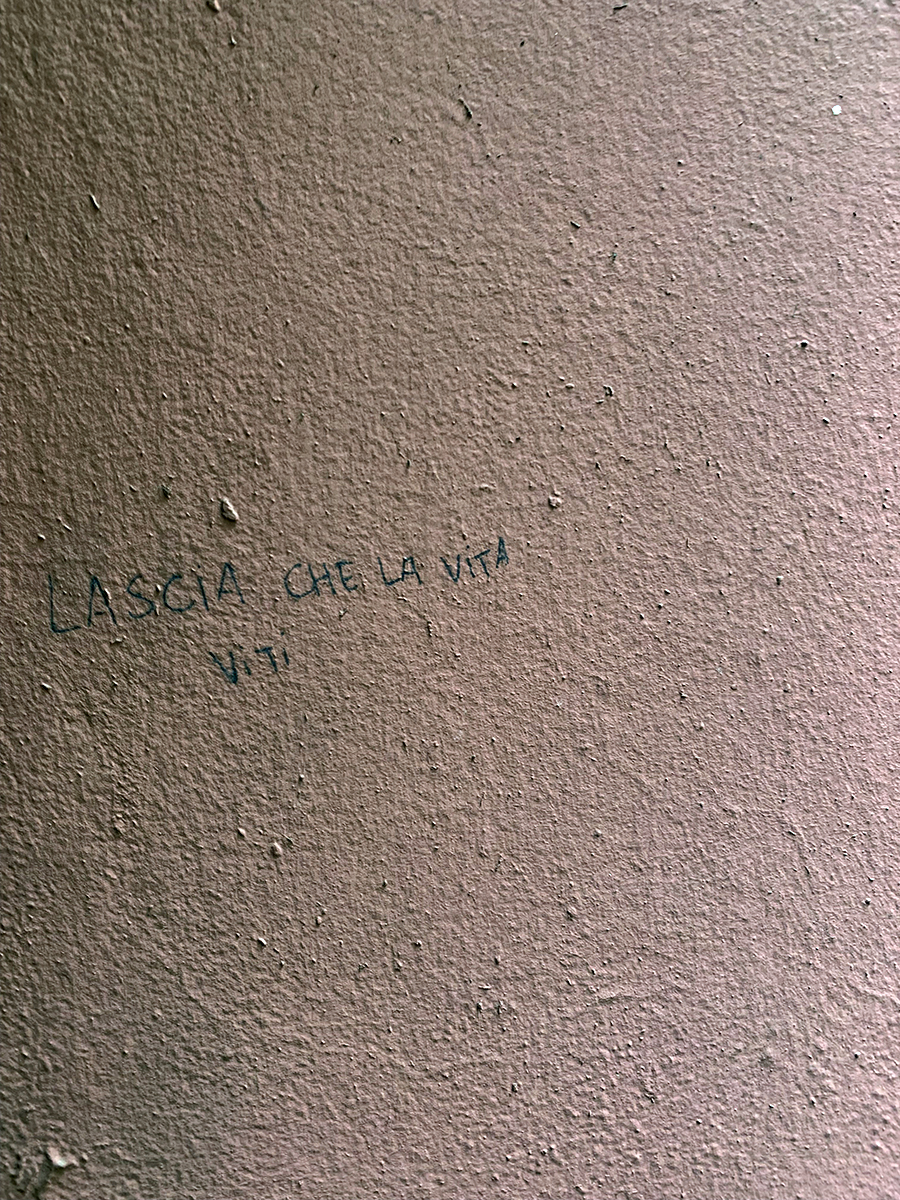 LASCIA CHE LA ViTA
ViTi